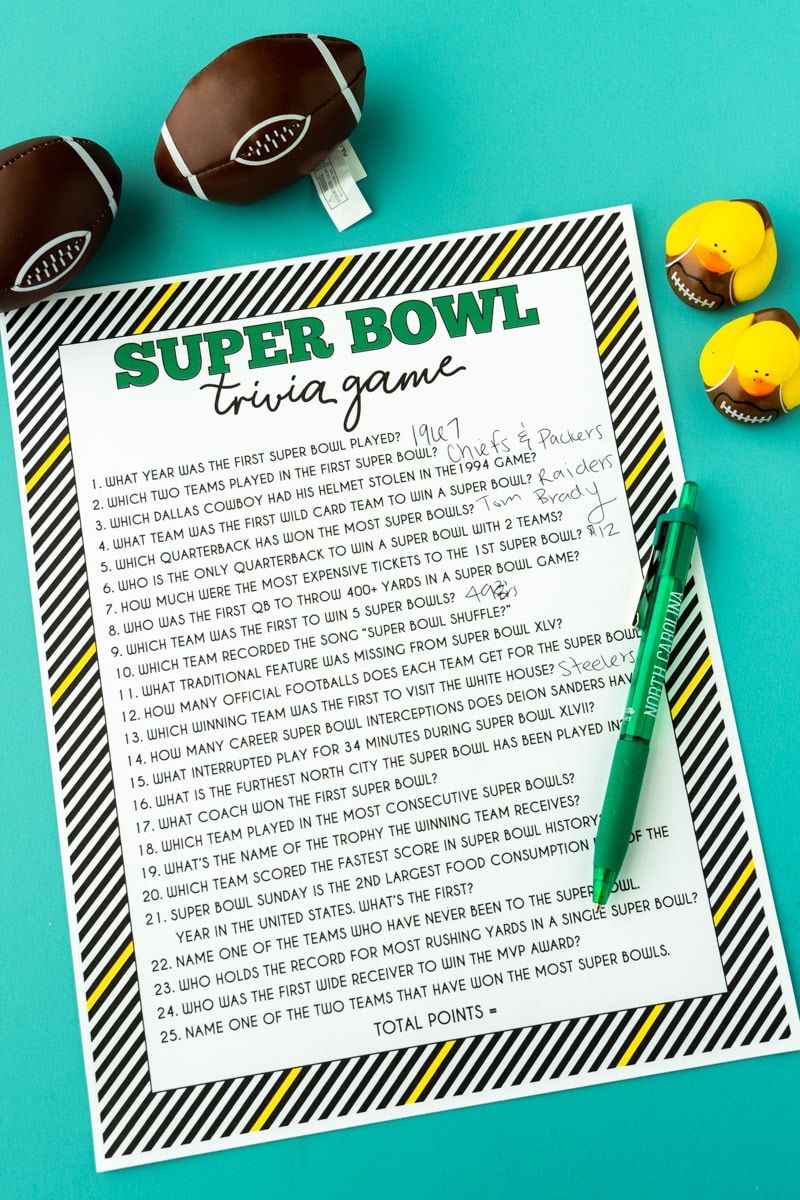 SUPER BOWL
trivia game
1. WHAT YEAR WAS THE FIRST SUPER BOWL PLAYED? 1967
2. WHICH TWO TEAMS PLAYED IN THE FIRST SUPER BOWL? Chiefs & Packers
3. WHICH DALLAS COWBOY HAD HIS HELMET STOLEN IN THE 1994 GAME?
4. WHAT TEAM WAS THE FIRST WILD CARD TEAM TO WIN A SUPER BOWL? Raiders
5. WHICH QUARTERBACK HAS WON THE MOST SUPER BOWLS? Tom Brady
6. WHO IS THE ONLY QUARTERBACK TO WIN A SUPER BOWL WITH 2 TEAMS?
7. HOW MUCH WERE THE MOST EXPENSIVE TICKETS TO THE 1ST SUPER BOWL? $12
8. WHO WAS THE FIRST QB TO THROW 400+ YARDS IN A SUPER BOWL GAME?
9. WHICH TEAM WAS THE FIRST TO WIN 5 SUPER BOWLS? 49ers
10. WHICH TEAM RECORDED THE SONG "SUPER BOWL SHUFFLE?"
11. WHAT TRADITIONAL FEATURE WAS MISSING FROM SUPER BOWL XLV?
12. HOW MANY OFFICIAL FOOTBALLS DOES EACH TEAM GET FOR THE SUPER BOWL
13. WHICH WINNING TEAM WAS THE FIRST TO VISIT THE WHITE HOUSE? Steelers
14. HOW MANY CAREER SUPER BOWL INTERCEPTIONS DOES DEION SANDERS HAV
15. WHAT INTERRUPTED PLAY FOR 34 MINUTES DURING SUPER BOWL XLVII?
16. WHAT IS THE FURTHEST NORTH CITY THE SUPER BOWL HAS BEEN PLAYED IN?
17. WHAT COACH WON THE FIRST SUPER BOWL?
18. WHICH TEAM PLAYED IN THE MOST CONSECUTIVE SUPER BOWLS?
19. WHAT'S THE NAME OF THE TROPHY THE WINNING TEAM RECEIVES?
20. WHICH TEAM SCORED THE FASTEST SCORE IN SUPER BOWL HISTORY?
21. SUPER BOWL SUNDAY IS THE 2ND LARGEST FOOD CONSUMPTION OF THE
YEAR IN THE UNITED STATES. WHAT'S THE FIRST?
22. NAME ONE OF THE TEAMS WHO HAVE NEVER BEEN TO THE SUPER BOWL.
23. WHO HOLDS THE RECORD FOR MOST RUSHING YARDS IN A SINGLE SUPER BOWL?
24. WHO WAS THE FIRST WIDE RECEIVER TO WIN THE MVP AWARD?
25. NAME ONE OF THE TWO TEAMS THAT HAVE WON THE MOST SUPER BOWLS.
TOTAL POINTS =
NORTH CAROLINA